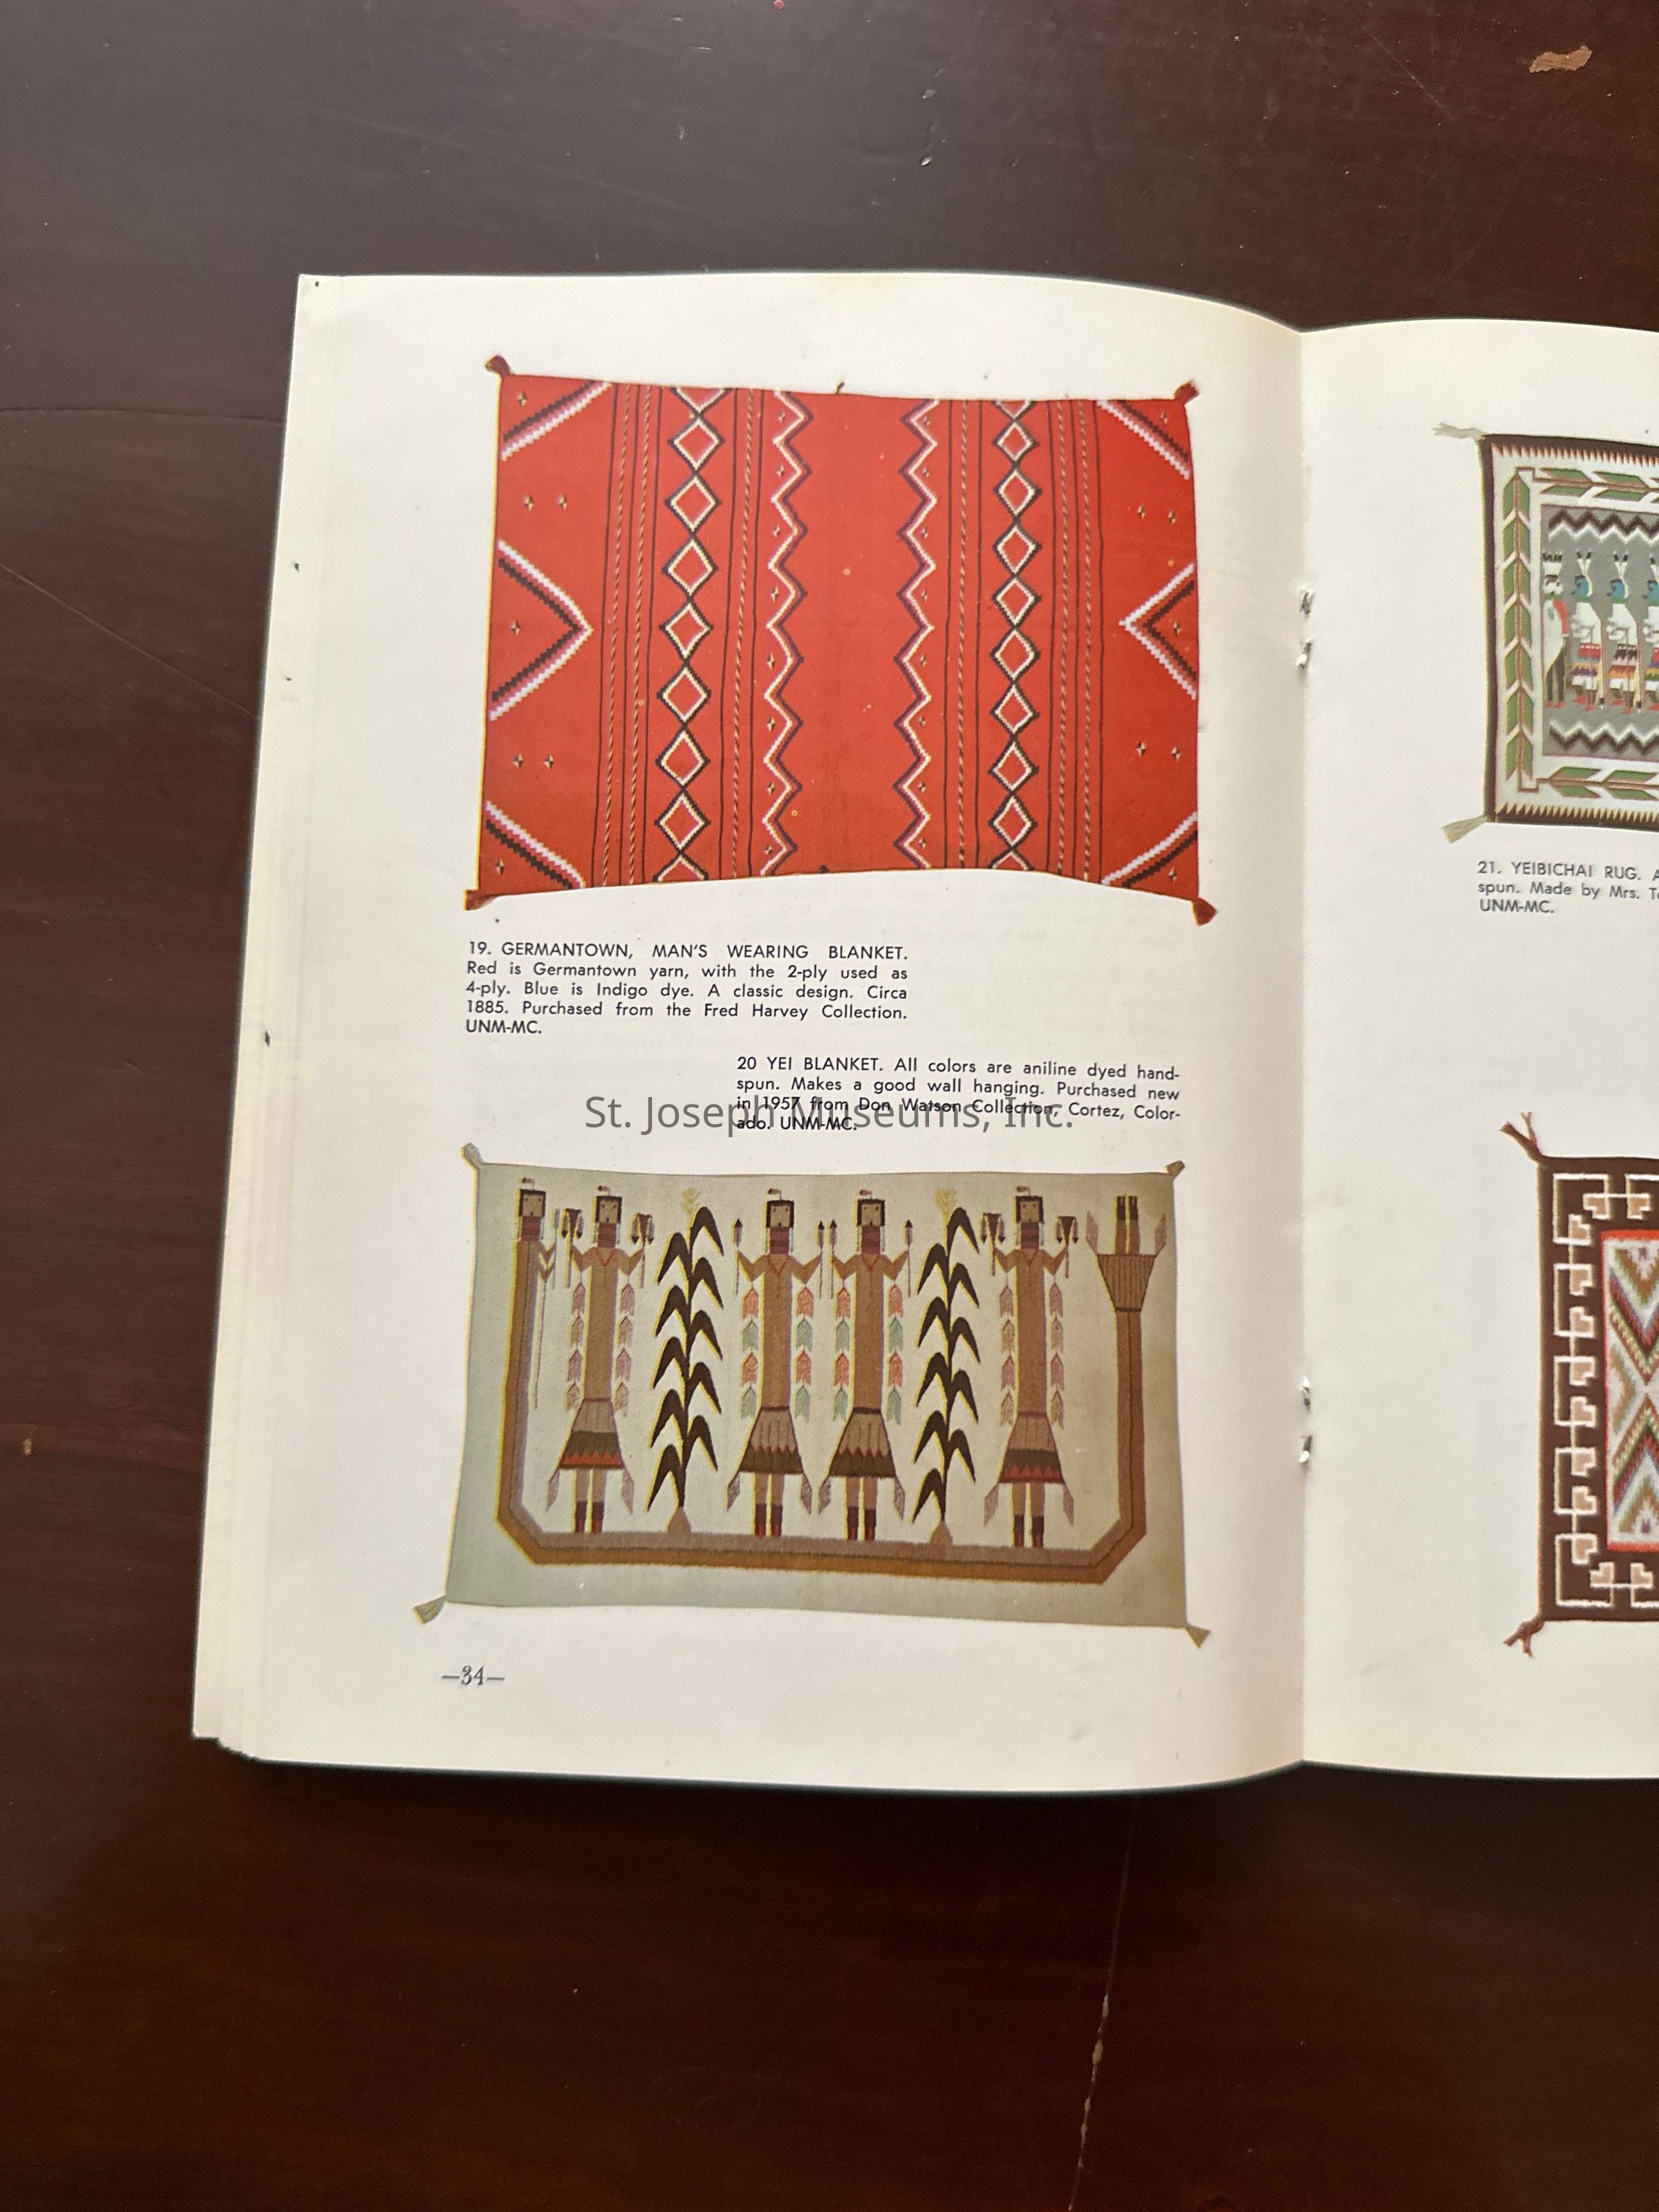 19. GERMANTOWN, MAN'S WEARING BLANKET.
Red is Germantown yarn, with the 2-ply used as
4-ply. Blue is Indigo dye. A classic design. Circa
1885. Purchased from the Fred Harvey Collection.
UNM-MC.
20 YEI BLANKET. All colors are aniline dyed hand-
spun. Makes a good wall hanging. Purchased new
in 1957 from Don Watson Collection, Cortez, Color-
ado. UNM-MC.
St. Joseph Museums, Inc.
—34—
21. YEIBICHAI RUG.
spun. Made by Mrs.
UNM-MC.